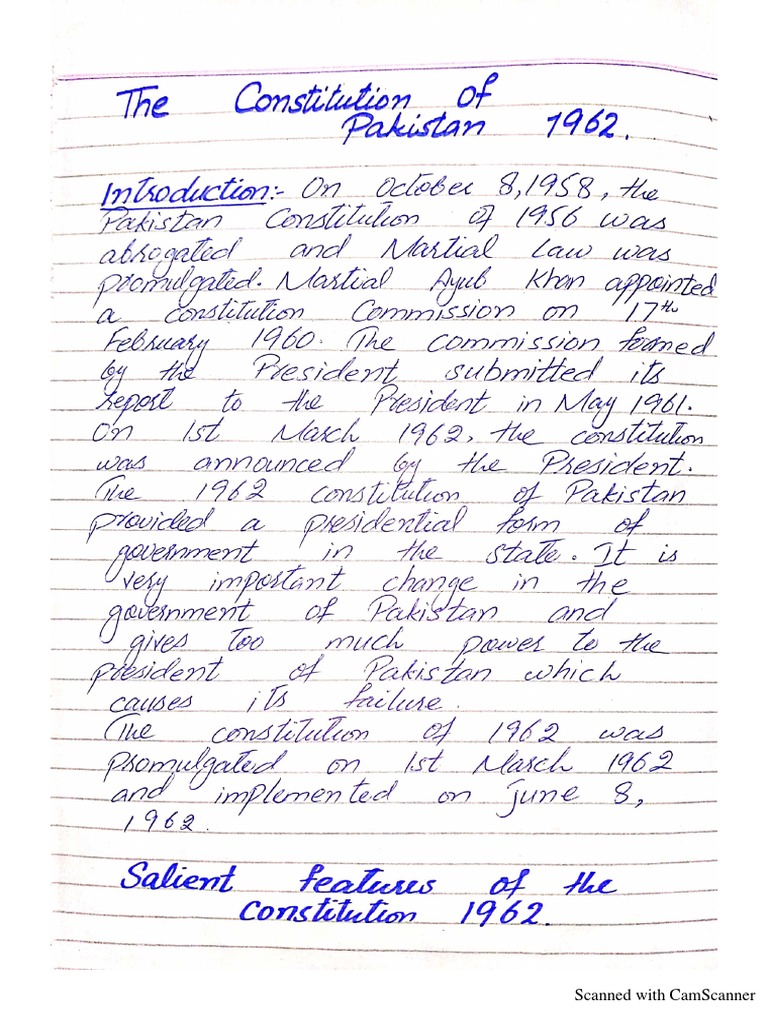 The Constitution of
Pakistan 1962.
Introduction:- On October 8, 1958, the
Pakistan Constitution of 1956 was
abrogated and Martial Law was
promulgated. Martial Ayub Khan appointed
a constitution Commission on 17th
February 1960. The commission formed
by the President submitted its
report to the President in May 1961.
On 1st March 1962, the constitution
was announced by the President.
The 1962 constitution of Pakistan
provided a presidential form of
government in the state. It is
very important change in the
government of Pakistan and
gives too much power to the
president of Pakistan which
causes its failure.
The constitution of 1962 was
promulgated on 1st March 1962
and implemented on June 8,
1962.
Salient features of the
Constitution 1962.
Scanned with CamScanner